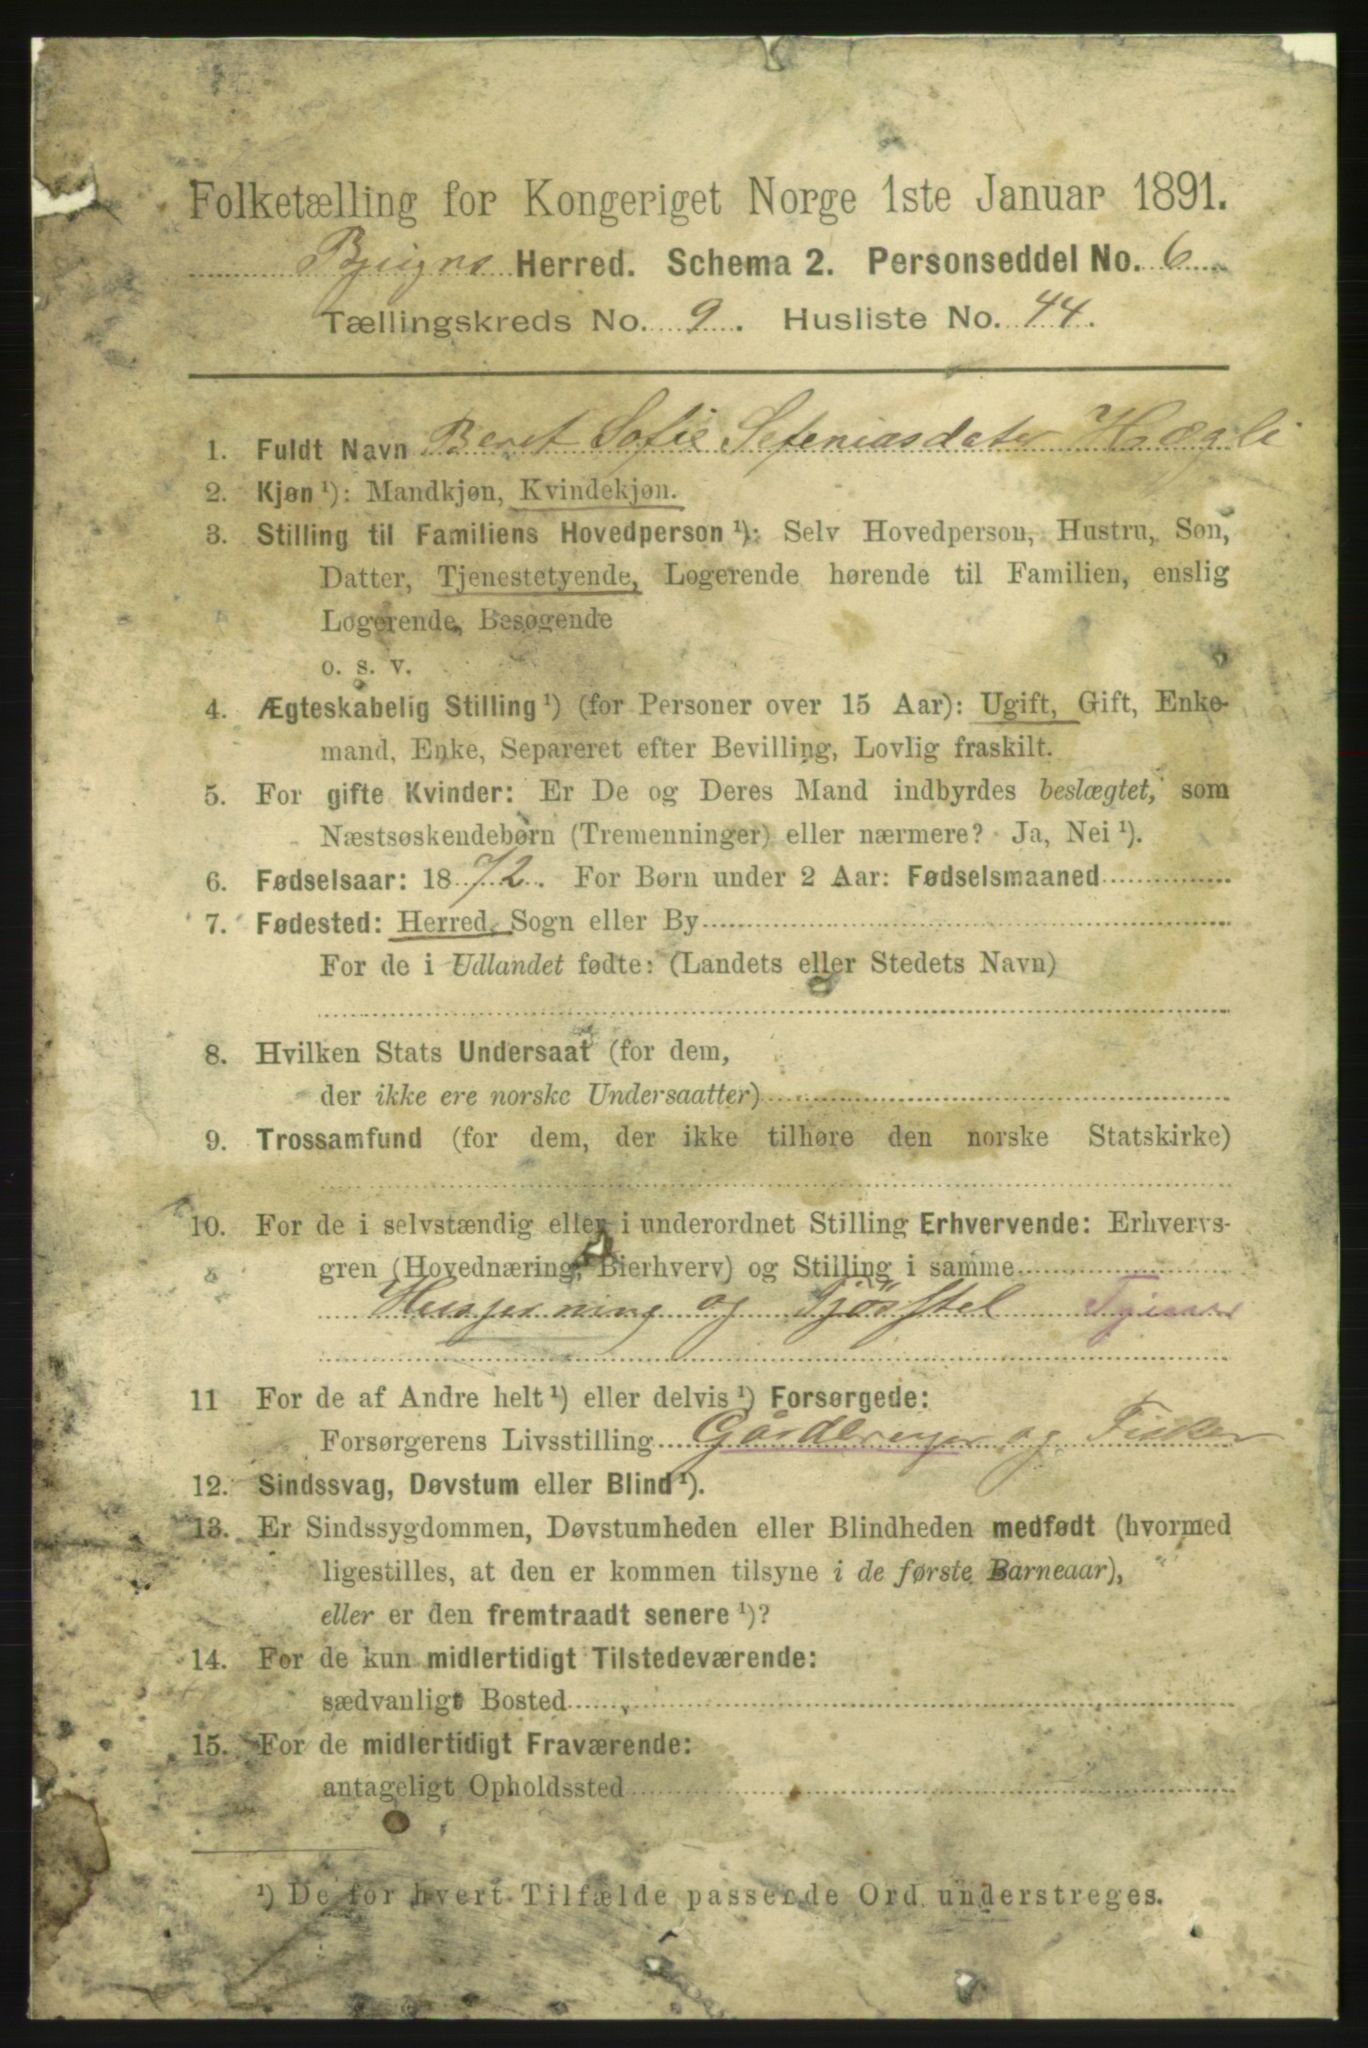 Folketælling for Kongeriget Norge 1ste Januar 1891.
Bjugns Herred. Schema 2. Personseddel No. 6
Tællingskreds No. 9. Husliste No. 44.
1. Fuldt Navn Beret Sofie Sefeniasdater Hægli
2. Kjøn ¹): Mandkjøn, Kvindekjøn.
3. Stilling til Familiens Hovedperson ¹): Selv Hovedperson, Hustru, Søn,
Datter, Tjenestetyende, Logerende hørende til Familien, enslig
Logerende, Besøgende
o. s. v.
4. Ægteskabelig Stilling ¹) (for Personer over 15 Aar): Ugift, Gift, Enke-
mand, Enke, Separeret efter Bevilling, Lovlig fraskilt.
5. For gifte Kvinder: Er De og Deres Mand indbyrdes beslægtet, som
Næstsøskendebørn (Tremenninger) eller nærmere? Ja, Nei ¹).
6. Fødselsaar: 1872. For Børn under 2 Aar: Fødselsmaaned
7. Fødested: Herred, Sogn eller By
For de i Udlandet fødte: (Landets eller Stedets Navn)
8. Hvilken Stats Undersaat (for dem,
der ikke ere norske Undersaatter)
9. Trossamfund (for dem, der ikke tilhøre den norske Statskirke)
10. For de i selvstændig eller i underordnet Stilling Erhvervende: Erhvervs-
gren (Hovednæring, Bierhverv) og Stilling i samme
Husgjerning og Fjøsstel
11 For de af Andre helt ¹) eller delvis ¹) Forsørgede:
Forsørgerens Livsstilling Gårdbruger og Fisker
12. Sindssvag, Døvstum eller Blind ¹).
13. Er Sindssygdommen, Døvstumheden eller Blindheden medfødt (hvormed
ligestilles, at den er kommen tilsyne i de første Barneaar),
eller er den fremtraadt senere ¹)?
14. For de kun midlertidigt Tilstedeværende:
sædvanligt Bosted
15. For de midlertidigt Fraværende:
antageligt Opholdssted
¹) De for hvert Tilfælde passende Ord understreges.